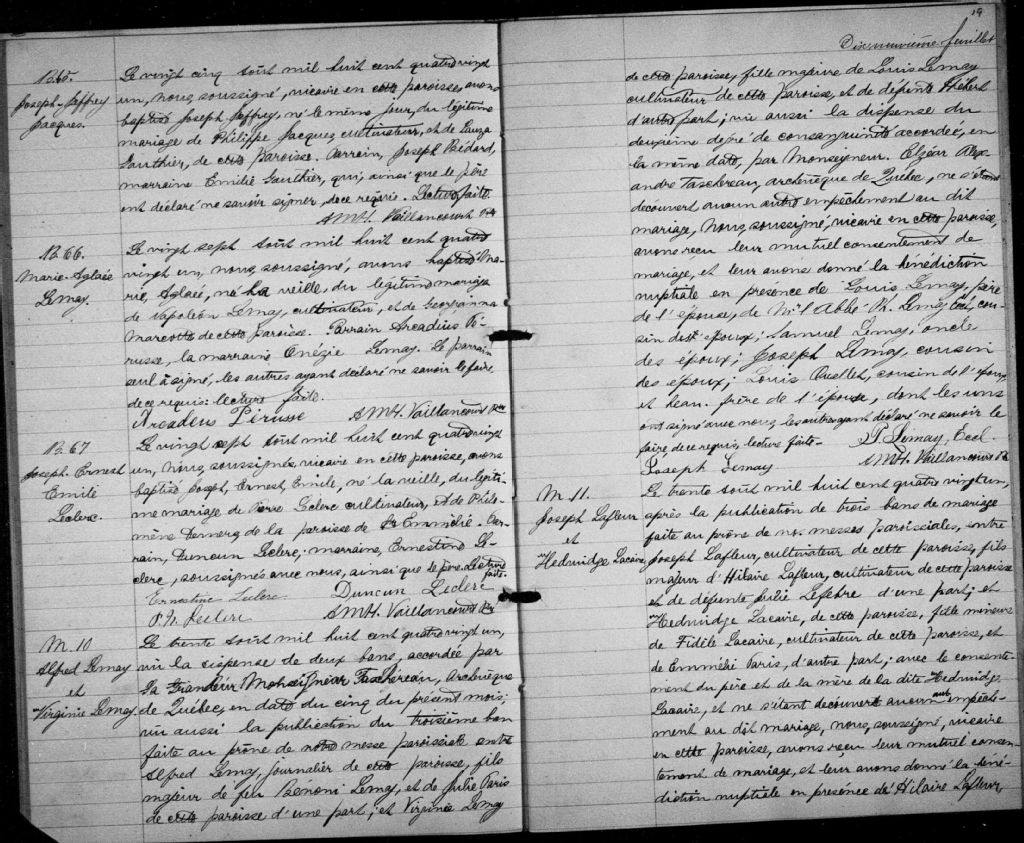 B. 65.
Joseph-Jeffrey
Jacques.
Le vingt cinq août mil huit cent quatre vingt
un, nous, soussigné, vicaire en cette paroisse, avons
baptisé Joseph Jeffrey, né le même jour, du légitime
mariage de Philippe Jacques, cultivateur, et de Louza
Gauthier, de cette paroisse. Parrain, Joseph Bédard,
marraine Emilie Gauthier, qui, ainsi que le père
ont déclaré ne savoir signer, de ce requis. Lecture faite.
A M H. Vaillancourt Vic
B. 66.
Marie-Aglaée
Lemay.
Le vingt sept août mil huit cent quatre
vingt un, nous, soussigné, avons baptisé Ma-
rie, Aglaé, né la veille, du légitime mariage
de Napoléon Lemay, cultivateur, et de Georgianna
Marcotte de cette paroisse. Parrain Arcadius Pé-
russe, la marraine Onézie Lemay. Le parrain
seul à signé, les autres ayant déclaré ne savoir le faire
de ce requis: lecture faite.
Arcadeus Pérusse
A M H. Vaillancourt Vic
B. 67
Joseph. Ernest
Emilé
Leclerc.
Le vingt sept août mil huit cent quatre vingt
un, Nous, soussignés, vicaire en cette paroisse, avons
baptisé Joseph, Ernest, Emile, né la veille, du légiti-
me mariage de Pierre Leclerc cultivateur, et de Philo-
mène Demers de la paroisse de Ste Emmélie. Par-
rain, Duncun Leclerc; marraine, Ernestine Le-
clerc, soussignés avec nous, ainsi que le père. Lecture
faite.
Ernestine Leclerc
Duncun Leclerc
P. N. Leclerc
A M H. Vaillancourt Vic
M. 10
Alfred Lemay
et
Virginie Lemay
Le trente août mil huit cent quatre vingt un,
vu la dispense de deux bans, accordée par
Sa Grandeur Monseigneur Taschereau, Archevêque
de Québec, en date du cinq du présent mois;
vu aussi la publication du troisième ban
faite au prône de notre messe paroissiale entre
Alfred Lemay, journalier de cette paroisse, fils
majeur de feu Benoni Lemay, et de Julie Paris
de cette paroisse d'une part; et Virginie Lemay
19
Dixneuvième feuillet
de cette paroisse, fille majeure de Louis Lemay
cultivateur de cette Paroisse, et de défunte Hébert
d'autre part; vu aussi la dispense du
deuxième degré de consanguinité accordée, en
la même date, par Monseigneur. Elzéar Alex-
andre Taschereau, archevêque de Québec, ne s'étant
découvert aucun autre empêchement au dit
mariage, Nous, soussigné, vicaire en cette paroisse,
avons reçu leur mutuel consentement de
mariage, et leur avons donné la bénédiction
nuptiale en présence de Louis Lemay, père
de l'épouse, de Mr l'Abbé Ph. Lemay, cou-
sin des époux; Samuel Lemay, oncle
des époux; Joseph Lemay, cousin
des époux; Louis Ouellet, cousin de l'époux,
et beau-frère de l'épouse, dont les uns
ont signé avec nous, les autres ayant déclaré ne savoir le
faire, de ce requis, lecture faite-
P. Lemay, Eccl.
Joseph Lemay
A M H. Vaillancourt Vic
M. 11.
Joseph Lafleur
et
Hedwidge Lacaire
Le trente août mil huit cent quatre vingt un,
après la publication de trois bans de mariage
faite au prône de nos messes paroissiales, entre
Joseph Lafleur, cultivateur de cette paroisse, fils
majeur d'Hilaire Lafleur, cultivateur de cette paroisse
et de défunte Julie Lefebre d'une part; et
Hedwidge Lacaire, de cette paroisse, fille mineure
de Fidèle Lacaire, cultivateur de cette paroisse, et
de Emméli Paris, d'autre part; avec le consente-
ment du père et de la mère de la dite Hedwidge
Lacaire, et ne s'étant découvert aucun autre empêche-
ment au dit mariage, nous, soussigné, vicaire
en cette paroisse, avons reçu leur mutuel consen-
tement de mariage, et leur avons donné la béné-
diction nuptiale en présence de Hilaire Lafleur,